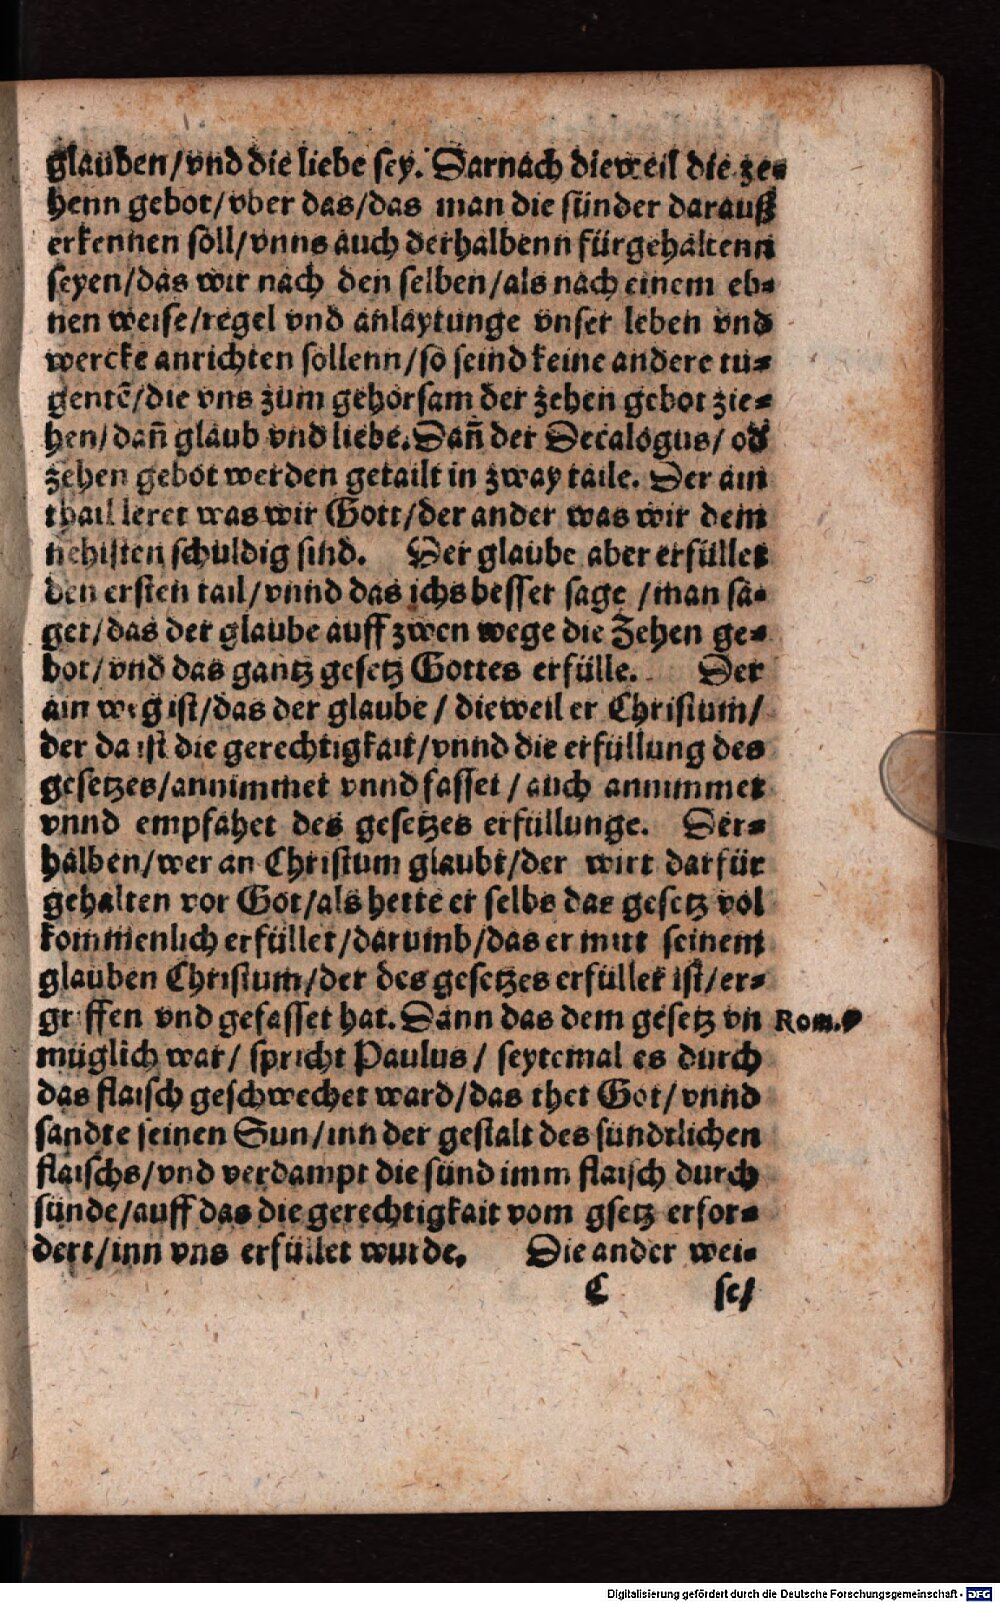 glauben/vnd die liebe sey. Darnach dieweil die ze-
henn gebot/vber das/das man die sünder darauß
erkennen soll/vnns auch derhalbenn fürgehaltenn
seyen/das wir nach den selben/als nach einem eb-
nen weise/regel vnd anlaytunge vnser leben vnd
wercke anrichten sollenn/so seind keine andere tu-
gentē/die vns zum gehorsam der zehen gebot zie-
hen/dañ glaub vnd liebe. Dañ der Decalogus/ od̕
zehen gebot werden getailt in zway taile. Der ain
thail leret was wir Gott/der ander was wir dem
nehisten schuldig sind. Der glaube aber erfüllet
den ersten tail/vnnd das ichs besser sage /man sa-
get/das der glaube auff zwen wege die Zehen ge-
bot/vnd das gantz gesetz Gottes erfülle. Der
ain weg ist/das der glaube/ dieweil er Christum/
der da ist die gerechtigkait/vnnd die erfüllung des
gesetzes/annimmet vnnd fasset/auch annimmet
vnnd empfahet des gesetzes erfüllunge. Der-
halben/wer an Christum glaubt/der wirt darfür
gehalten vor Got/als hette er selbs das gesetz vol
kommenlich erfüllet/darumb/das er mitt seinem
glauben Christum/der des gesetzes erfüller ist/er-
griffen vnd gefasset hat. Dann das dem gesetz vn
Rom.
müglich war/ spricht Paulus/ seytemal es durch
das flaisch geschwechet ward/das thet Got/vnnd
sandte seinen Sun/inn der gestalt des sündtlichen
flaischs/vnd verdampt die sünd imm flaisch durch
sünde/auff das die gerechtigkait vom gsetz erfor-
dert/inn vns erfüllet wurde. Die ander wei-
C se/
Digitalisierung gefördert durch die Deutsche Forschungsgemeinschaft - DFG